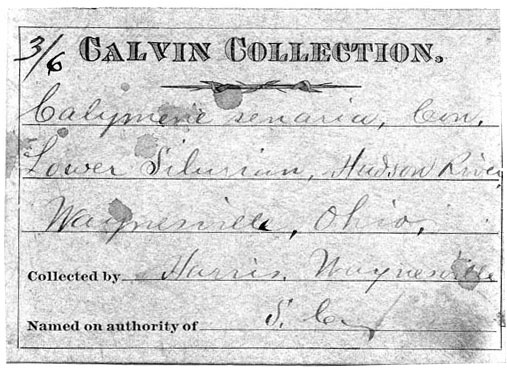 3/6 CALVIN COLLECTION.
Calymene senaria, Con.
Lower Silurian, Hudson River
Waynesville, Ohio,
Collected by Harris, Waynesville
Named on authority of S. C